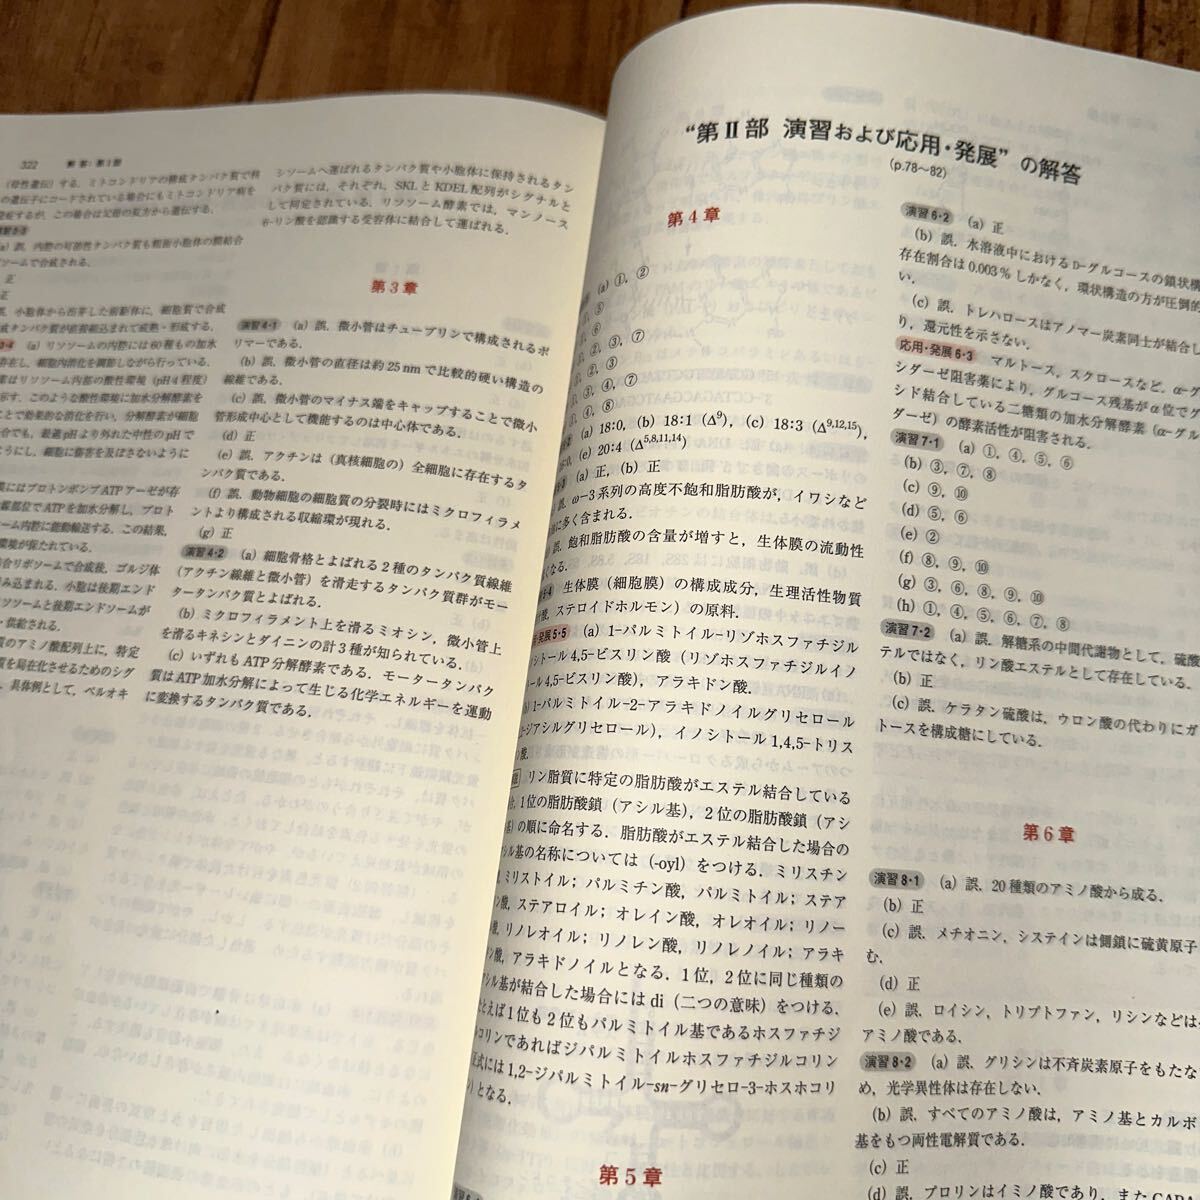 322 解答：第Ⅰ部
（母性遺伝）する．ミトコンドリアの構成タンパク質で核
の遺伝子にコードされている場合にもミトコンドリア病を
発症するが，この場合は父母の双方から遺伝する．
(a) 誤．内腔の可溶性タンパク質も粗面小胞体の膜結合
ソームで合成される．
正
正
誤．小胞体から出芽した前駆体に，細胞質で合成
成タンパク質が直接輸送されて成熟・形成する．
(a) リソソームの内腔には60種もの加水
存在し，細胞内消化を調節しながら行っている．
素はリソソーム内部の酸性環境（pH4程度）
示す．このような酸性環境に加水分解酵素を
ことで効率的な消化を行い，分解酵素が細胞
合でも，最適pHより外れた中性のpHで
ようにし，細胞に傷害を及ぼさないように
膜にはプロトンポンプATPアーゼが存
部位でATPを加水分解し，プロト
ーム内腔に能動輸送する．この結果，
環境が保たれている．
合リボソームで合成後，ゴルジ体
み込まれる．小胞は後期エンド
ソソームと後期エンドソームが
・供給される．
質のアミノ酸配列上に，特定
質を局在化させるためのシグ
．具体例として，ペルオキ
シソームへ運ばれるタンパク質や小胞体に保持されるタン
パク質には，それぞれ，SKLとKDEL配列がシグナルと
して同定されている．リソソーム酵素では，マンノース
6-リン酸を認識する受容体に結合して運ばれる．
第3章
演習4・1 (a) 誤．微小管はチューブリンで構成されるポ
リマーである．
(b) 誤．微小管の直径は約25 nmで比較的硬い構造の
線維である．
(c) 誤．微小管のマイナス端をキャップすることで微小
管形成中心として機能するのは中心体である．
(d) 正
(e) 誤．アクチンは（真核細胞の）全細胞に存在するタ
ンパク質である．
(f) 誤．動物細胞の細胞質の分裂時にはミクロフィラメ
ントより構成される収縮環が現れる．
(g) 正
演習4・2 (a) 細胞骨格とよばれる2種のタンパク質線維
（アクチン線維と微小管）を滑走するタンパク質群がモー
タータンパク質とよばれる．
(b) ミクロフィラメント上を滑るミオシン，微小管上
を滑るキネシンとダイニンの計3種が知られている．
(c) いずれもATP分解酵素である．モータータンパク
質はATP加水分解によって生じる化学エネルギーを運動
に変換するタンパク質である．
“第Ⅱ部 演習および応用・発展”の解答
(p.78～82)
第4章
(a) ①，②
①，⑤
①，②，③，⑦
①，②，③
③，④，⑦
④，⑧
(a) 18:0，(b) 18:1 (Δ9)，(c) 18:3 (Δ9,12,15)，
(e) 20:4 (Δ5,8,11,14)
(a) 正，(b) 正
誤．ω-3系列の高度不飽和脂肪酸が，イワシなど
に多く含まれる．
誤．飽和脂肪酸の含量が増すと，生体膜の流動性
くなる．
生体膜（細胞膜）の構成成分，生理活性物質
酸，ステロイドホルモン）の原料．
発展5・5 (a) 1-パルミトイル-リゾホスファチジル
シトール4,5-ビスリン酸（リゾホスファチジルイノ
ール4,5-ビスリン酸），アラキドン酸．
1-パルミトイル-2-アラキドノイルグリセロール
-ジアシルグリセロール），イノシトール1,4,5-トリス
酸．
リン脂質に特定の脂肪酸がエステル結合している
，1位の脂肪酸鎖（アシル基），2位の脂肪酸鎖（アシ
基）の順に命名する．脂肪酸がエステル結合した場合の
ル基の名称については（-oyl）をつける．ミリスチン
，ミリストイル；パルミチン酸，パルミトイル；ステア
ン酸，ステアロイル；オレイン酸，オレオイル；リノー
酸，リノレオイル；リノレン酸，リノレノイル；アラキ
ン酸，アラキドノイルとなる．1位，2位に同じ種類の
シル基が結合した場合にはdi（二つの意味）をつける．
とえば1位も2位もパルミトイル基であるホスファチジ
コリンであればジパルミトイルホスファチジルコリン
式には1,2-ジパルミトイル-sn-グリセロ-3-ホスホコリ
）となる．
第5章
演習6・2 (a) 正
(b) 誤．水溶液中におけるD-グルコースの鎖状構
存在割合は0.003%しかなく，環状構造の方が圧倒的
い．
(c) 誤．トレハロースはアノマー炭素同士が結合し
り，還元性を示さない．
応用・発展6・3 マルトース，スクロースなど，α-グ
シダーゼ阻害薬により，グルコース残基がα位でグ
シド結合している二糖類の加水分解酵素（α-グル
ダーゼ）の酵素活性が阻害される．
演習7・1 (a) ①，④，⑤，⑥
(b) ③，⑦，⑧
(c) ⑨，⑩
(d) ⑤，⑥
(e) ②
(f) ⑧，⑨，⑩
(g) ③，⑥，⑧，⑨，⑩
(h) ①，④，⑤，⑥，⑦，⑧
演習7・2 (a) 誤．解糖系の中間代謝物として，硫酸
テルではなく，リン酸エステルとして存在している．
(b) 正
(c) 誤．ケラタン硫酸は，ウロン酸の代わりにガ
トースを構成糖にしている．
第6章
演習8・1 (a) 誤．20種類のアミノ酸から成る．
(b) 正
(c) 誤．メチオニン，システインは側鎖に硫黄原子
む．
(d) 正
(e) 誤．ロイシン，トリプトファン，リシンなどは
アミノ酸である．
演習8・2 (a) 誤．グリシンは不斉炭素原子をもたな
め，光学異性体は存在しない．
(b) 誤．すべてのアミノ酸は，アミノ基とカルボ
基をもつ両性電解質である．
(c) 正
(d) 誤．プロリンはイミノ酸であり，また